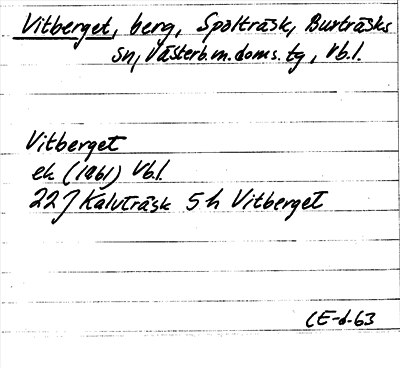 Vitberget, berg, Spölträsk, Burträsks
sn, Västerb.m.doms.tg, Vb.l.
Vitberget
ek (1961) Vb.l.
22J Kalvträsk 5h Vitberget
CE-d-63